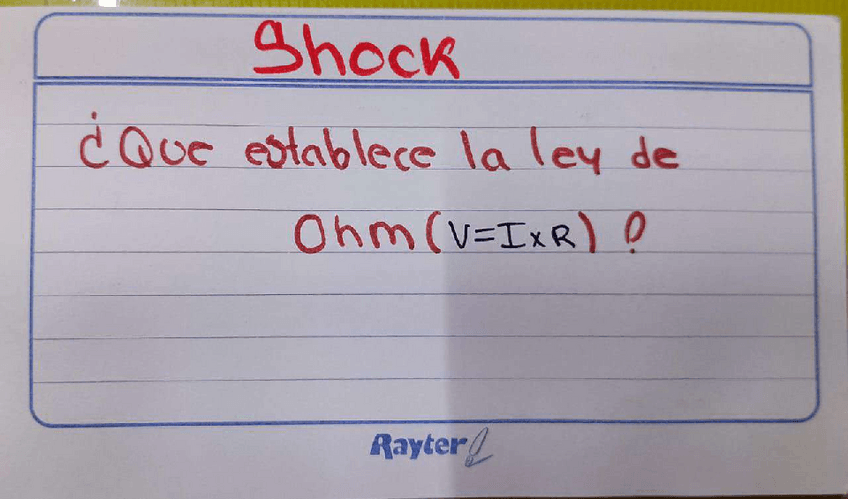 Shock
¿Que establece la ley de
Ohm (V=IxR)?
Rayter